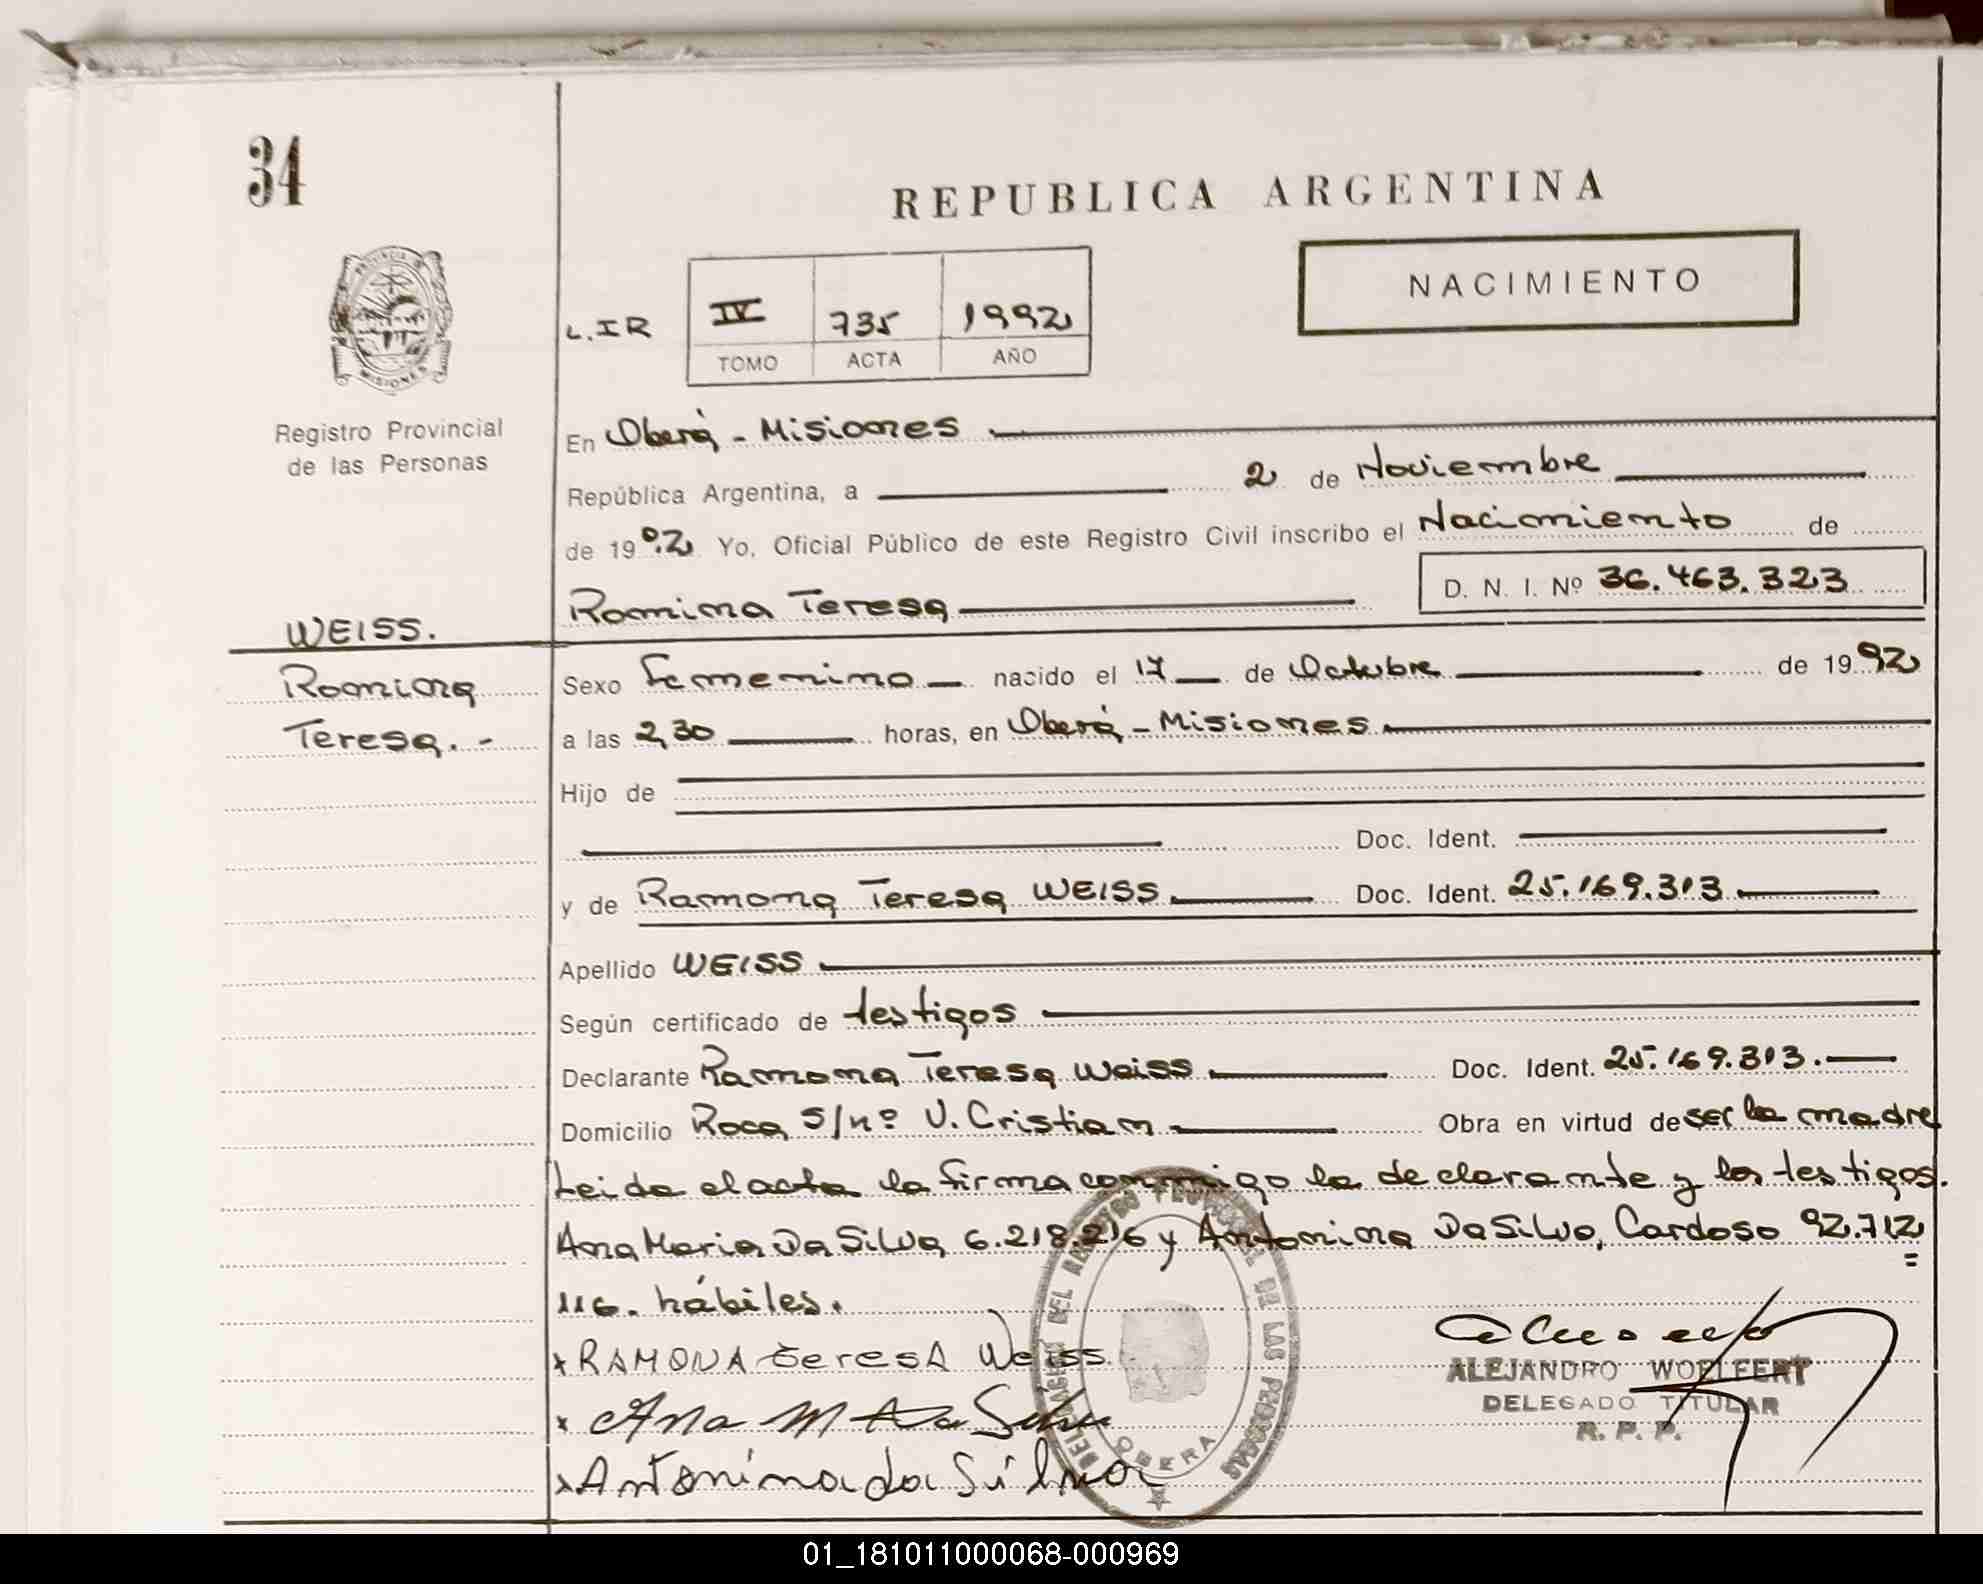 34
REPUBLICA ARGENTINA
NACIMIENTO
L.IR
IV 735 1992
TOMO ACTA AÑO
PROVINCIA DE
MISIONES
Registro Provincial
de las Personas
En Oberá - Misiones
República Argentina, a 2 de Noviembre
de 1992 Yo, Oficial Público de este Registro Civil inscribo el Nacimiento de
Romina Teresa D. N. I. Nº 36.463.323
WEISS.
Romina
Teresa. -
Sexo Femenino nacido el 17 de Octubre de 1992
a las 2,30 horas, en Oberá - Misiones
Hijo de
Doc. Ident.
y de Ramona Teresa WEISS Doc. Ident. 25.169.313
Apellido WEISS
Según certificado de testigos
Declarante Ramona Teresa Weiss Doc. Ident. 25.169.313.
Domicilio Roca S/nº V. Cristian Obra en virtud de ser la madre
Leida el acta la firma conmigo la declarante y los testigos.
Ana Maria Da Silva 6.218.216 y Antonina Da Silva, Cardoso 92.712
=
116. hábiles.
x RAMONA teresA Weiss.
x Ana M Da Silva
x Antonina da Silva
DEL REGISTRO PROVINCIAL DE LAS PERSONAS
OBERA
ALEJANDRO WOELFERT
DELEGADO TITULAR
R. P. P.
01_181011000068-000969